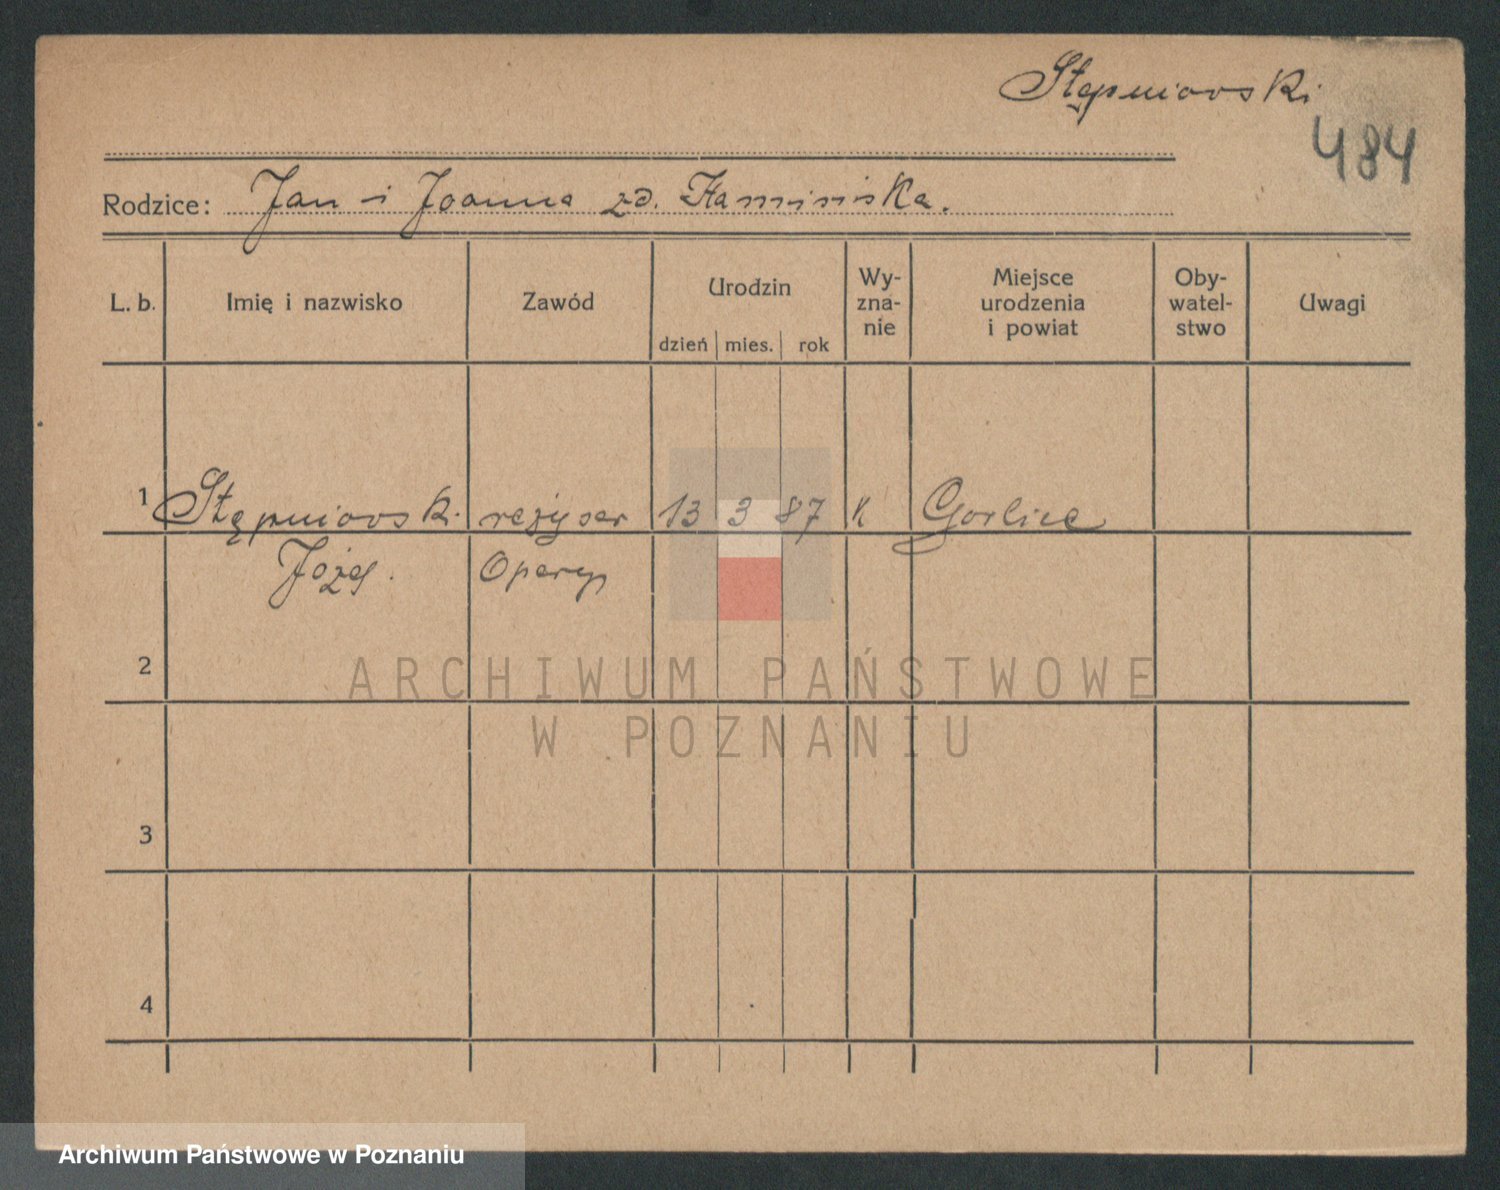 Stępniowski
484
Rodzice: Jan i Joanna zd.
L. b.
Imię i nazwisko
Zawód
Urodzin
dzień mies. rok
Wy-
zna-
nie
Miejsce
urodzenia
i powiat
Oby-
watel-
stwo
Uwagi
1 Stępniowski reżyser 13 3 87 K Gorlice
Józef. Opery
2
3
4
ARCHIWUM PAŃSTWOWE
W POZNANIU
Archiwum Państwowe w Poznaniu